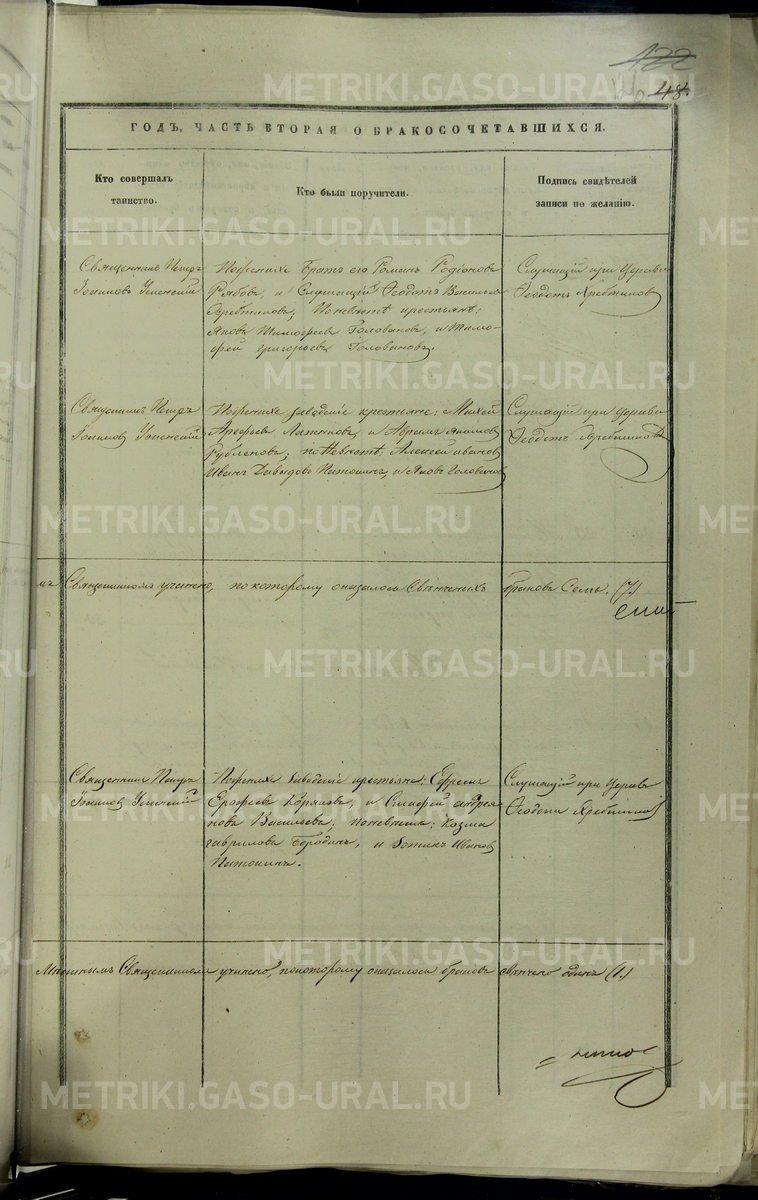 122
48.
ГОДЪ, ЧАСТЬ ВТОРАЯ О БРАКОСОЧЕТАВШИХСЯ.
Кто совершалъ
таинство.
Кто были поручители.
Подпись свидѣтелей
записи по желанію.
Священникъ Петръ
Іоакимовъ Успенскій
По женихѣ Братъ его Романъ Родіоновъ
Рябовъ, и Служащій Ѳеодотъ Васильевъ
Хребтиковъ, По невѣстѣ крестьяне;
Яковъ Тимофеевъ Головановъ, и Тимо-
фей Григорьевъ Головановъ.
Служащій при Церкви
Ѳеодотъ Хребтиковъ
Священникъ Петръ
Іоакимовъ Успенскій
По женихѣ заводскіе крестьяне; Михей
Арефьевъ и Абрамъ Акимовъ
по невѣстѣ; Алексѣй Ивановъ
Иванъ Давыдовъ Патокинъ, и Яковъ Головановъ
Служащій при Церкви
Ѳеодотъ Хребтиковъ
мъ Священникомъ учинено, по которому оказалось Свѣнченыхъ браковъ Семь. (7.)
Священникъ Петръ
Іоакимовъ Успенскій
По женихѣ заводскіе крестьяне; Ефремъ
Ерофеевъ Коряковъ, и Андрея-
новъ Васильевъ; по невѣстѣ; Козма
Гавриловъ Бородинъ, и Фотикъ Ивановъ
Патокинъ.
Служащій при Церкви
Ѳеодотъ Хребтиковъ
Мѣстнымъ Священникомъ учинено, по которому оказалось браковъ свѣнчено одинъ (1.)
METRIKI.GASO-URAL.RU